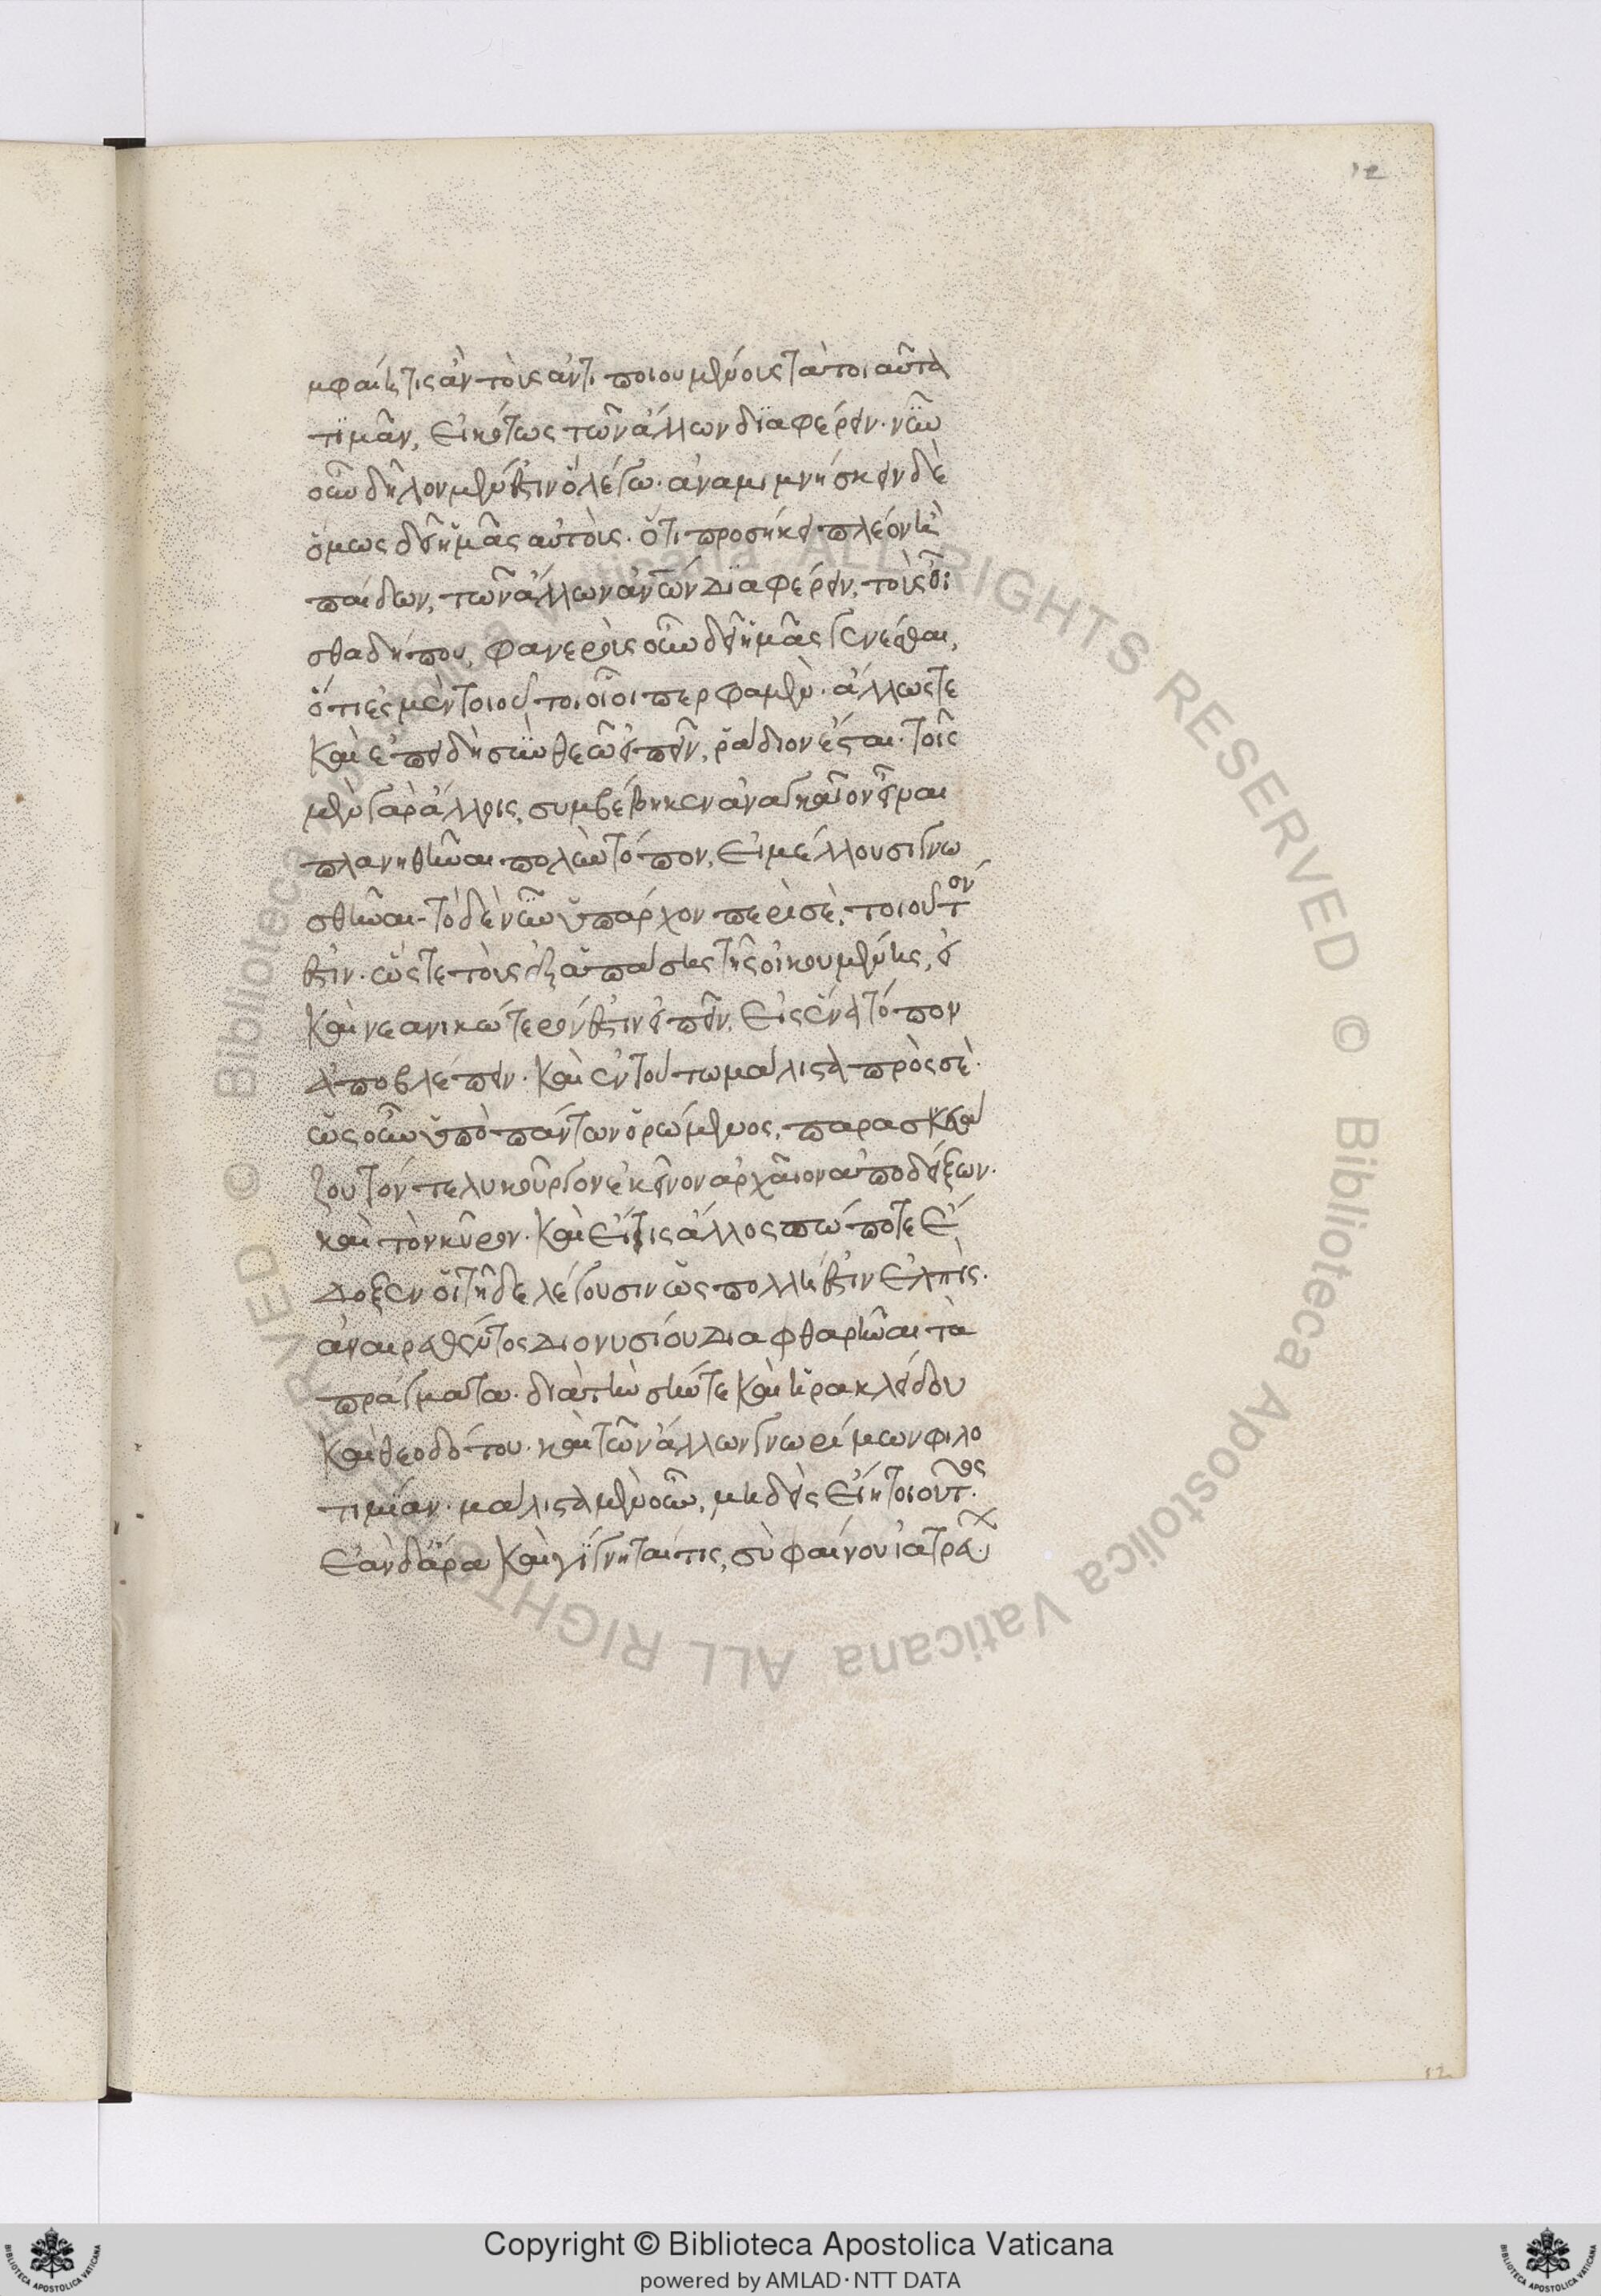 12
μφαίη τις ἂν τοῖς ἀντιποιουμένοις τὰ τοιαῦτα
τιμᾶν, εἰκότως τῶν ἄλλων διαφέρειν. νῦν
οὖν δῆλον μέν ἐστιν ὃ λέγω. ἀναμιμνήσκειν δὲ
ὅμως δεῖ ἡμᾶς αὐτοὺς. ὅτι προσήκει πλέον ἢ
παίδων, τῶν ἄλλων ἀν̅ω̅ν διαφέρειν, τοὺς οἶ
σθα δή που, φανεροὺς οὖν δεῖ ἡμᾶς γενέσθαι,
ὅτι ἐσμὲν τοιοῦτοι οἷοί περ φαμὲν. ἄλλως τε
καὶ ἐπειδὴ σὺν θεῶ εἰπεῖν, ῥάδιον ἔσται. τοῖς
μὲν γὰρ ἄλλοις, συμβέβηκεν ἀναγκαῖον εἶναι
πλανηθῆναι πολὺν τόπον, εἰ μέλλουσι γνω
σθῆναι. τὸ δὲ νῦν ὑπάρχον περὶ σὲ, τοιοῦτόν
ἐστιν. ὥστε τοὺς ἐξ ἁπάσης τῆς οἰκουμένης, εἰ
καὶ νεανικώτερόν ἐστιν εἰπεῖν, εἰς ἕνα τόπον
ἀποβλέπειν. καὶ ἐν τούτω μάλιστα πρὸς σὲ.
ὡς οὖν ὑπὸ πάντων ὁρώμενος, παρασκευά
ζου τόν τε λυκοῦργον ἐκεῖνον ἀρχαῖον ἀποδείξων.
καὶ τὸν κῦρον. καὶ εἴ τις ἄλλος πώποτε ἔ
δοξεν οἱ τῆδε λέγουσιν ὡς πολλή ἐστιν ἐλπὶς.
ἀναιρεθέντος διονυσίου διαφθαρῆναι τὰ
πράγματα. διὰ τὴν σήν τε καὶ ἡρακλείδου
καὶ θεοδότου. καὶ τῶν ἄλλων γνωρίμων φιλο
τιμίαν. μάλιστα μὲν οὖν, μηδεὶς εἴη τοιοῦτος.
ἐὰν δ' ἄρα καὶ γίγνηταί τις, σὺ φαίνου ἰατρεύ
Copyright © Biblioteca Apostolica Vaticana
powered by AMLAD·NTT DATA